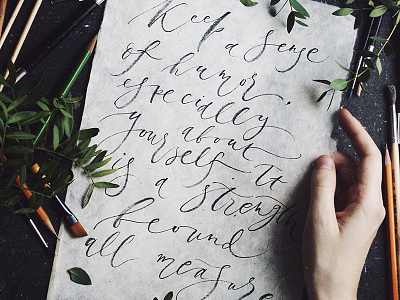 Keep a sense
of humor,
especially
your about
yourself. It
is a strength
beound
all measure